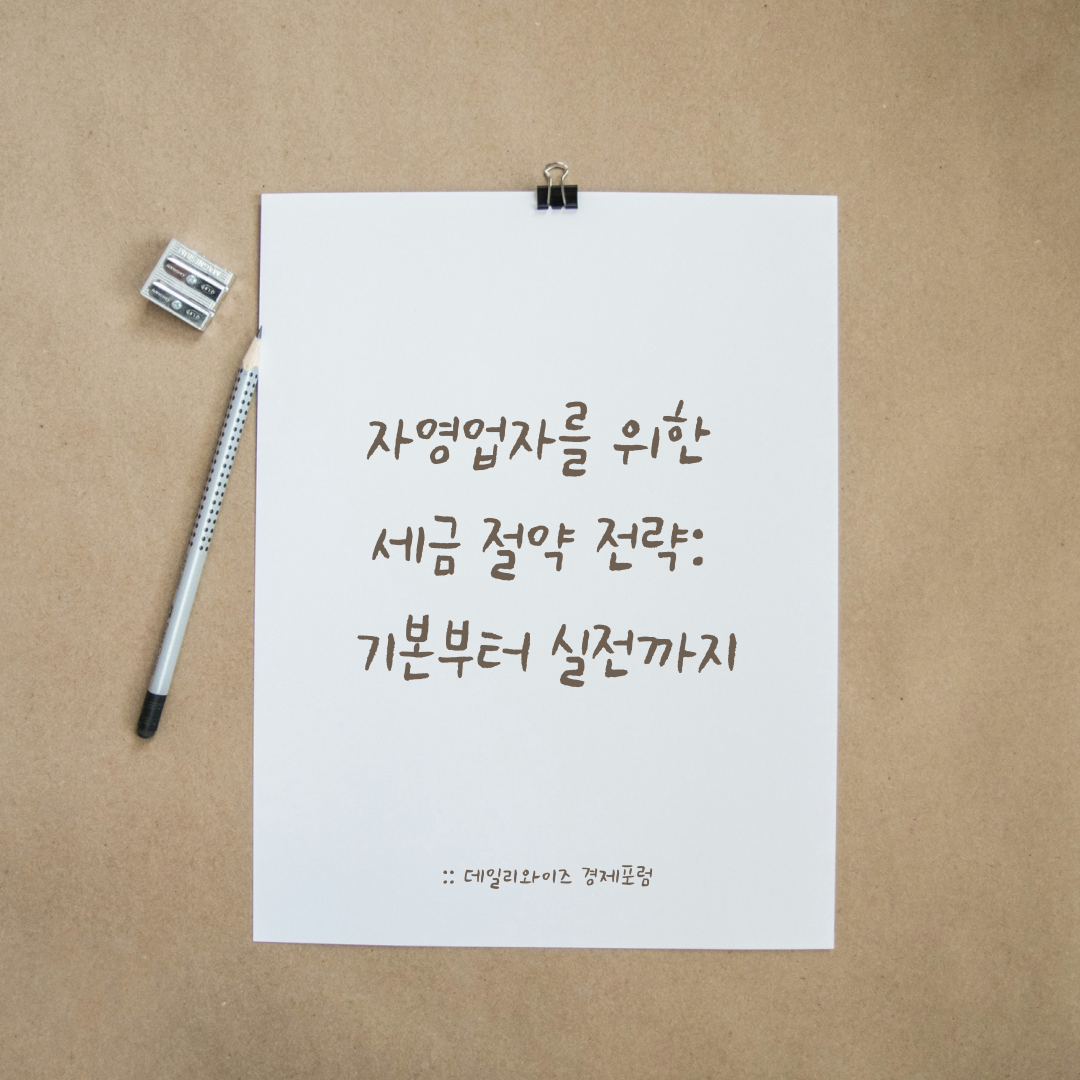 자영업자를 위한
세금 절약 전략:
기본부터 실전까지
:: 데일리와이즈 경제포럼